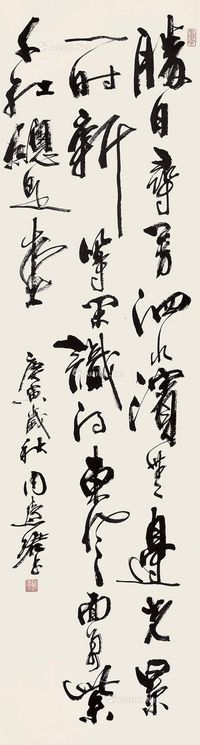 勝日尋芳泗水濱無邊光景
一時新等閒識得東風面萬紫
千紅總是春
庚寅歲秋周慧珺